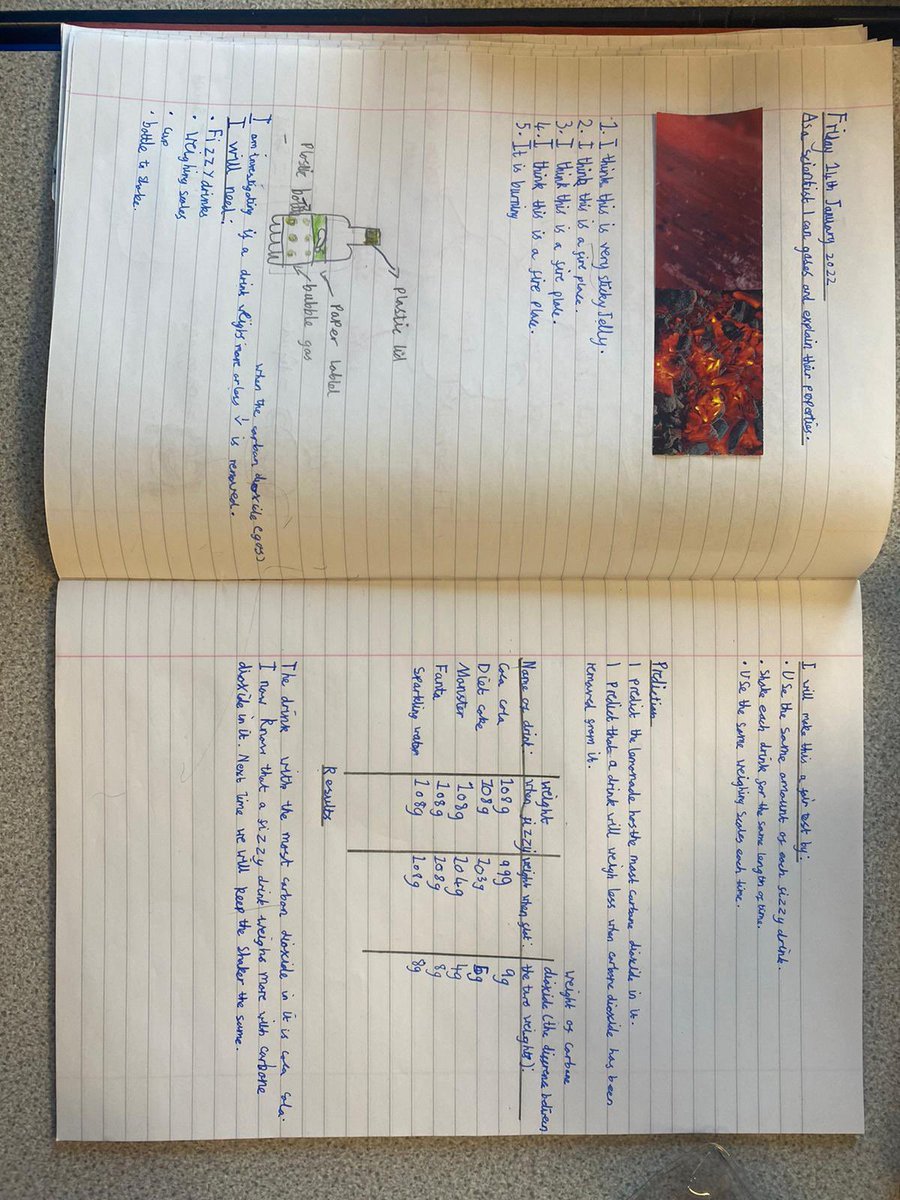 Friday 14th January 2022
As a scientist I can gases and explain their properties.
1. I think this is very sticky Jelly.
2. I think this is a fire place.
3. I think this is a fire place.
4. I think this is a fire place.
5. It is burning
plastic lid
Paper lablel
bubble gas
Plastic bottle
when the carban dioxide (gas)
I am investigating if a drink weighs more or less is removed.
I will need:
• Fizzy drinks
• Weighing scales
• cup
• bottle to shake.
I will make this a fair test by:
• Use the same amount of each fizzy drink.
• Shake each drink for the same length of time.
• Use the same weighing scales each time.
Prediction
I predict the lemonade has the most carbone dioxide in it.
I predict that a drink will weigh less when carbone dioxide has been
removed from it.
Name of drink. weight when fizzy weight when flat: weight of carbone dioxide (the difference between the two weights):
Coca cola 108g 99g 9g
Diet coke 208g 203g 5g
Monster 208g 204g 4g
Fanta 108g 108g 8g
Sparkling water 108g 108g 8g
Results
The drink with the most carbon dioxide in it is coca cola.
I now know that a fizzy drink weighs more with carbone
dioxide in it. Next time we will keep the shaker the same.